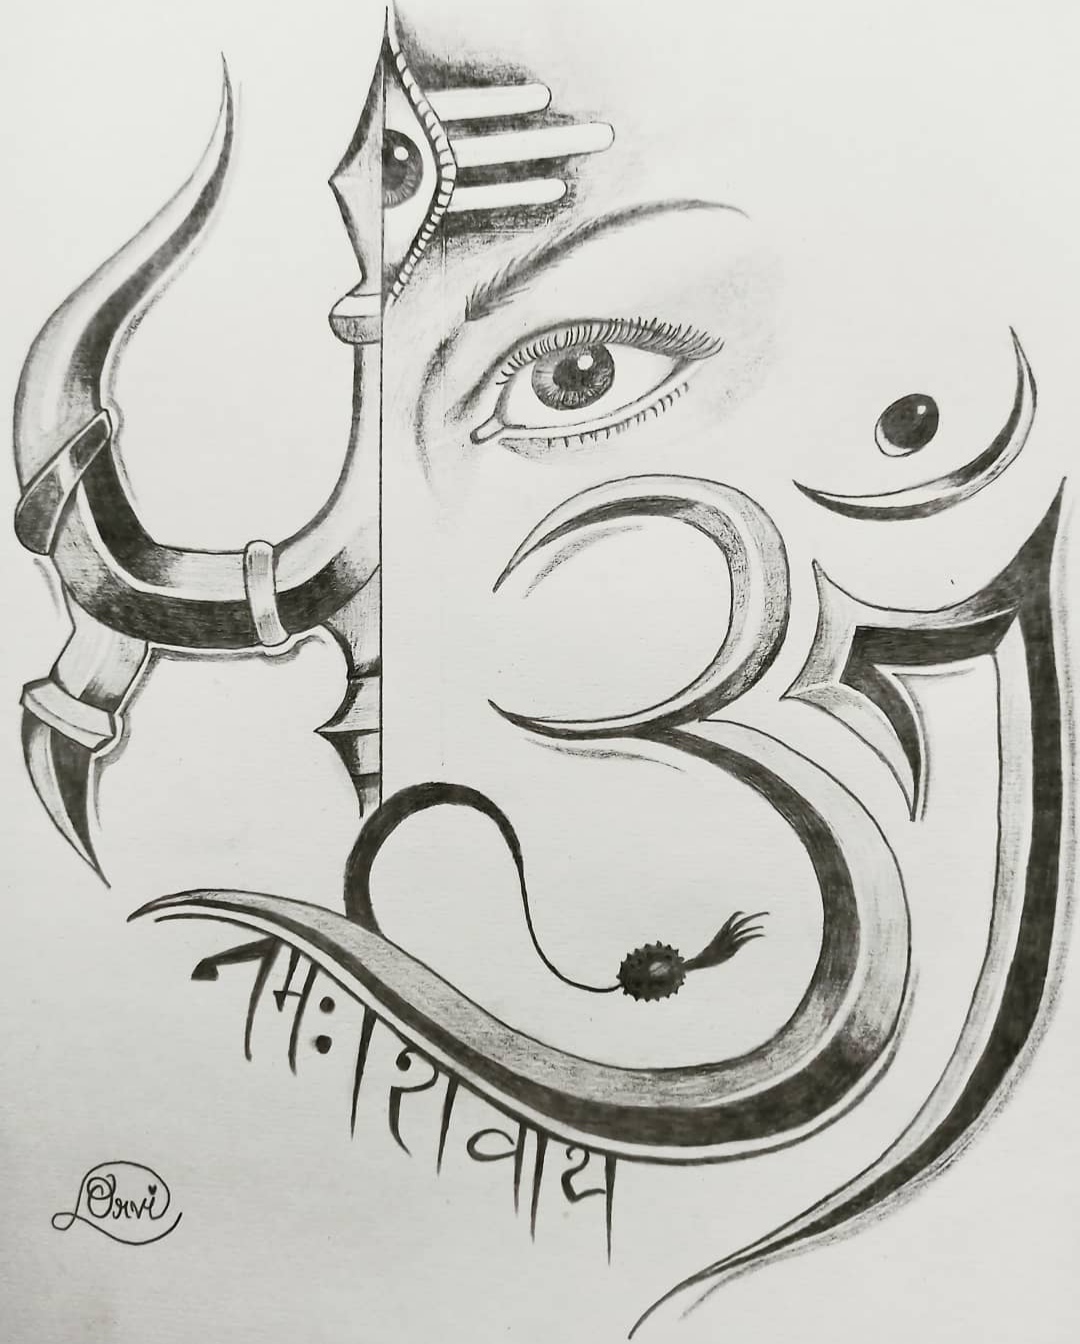 ॐ
नमः शिवाय
Orvi